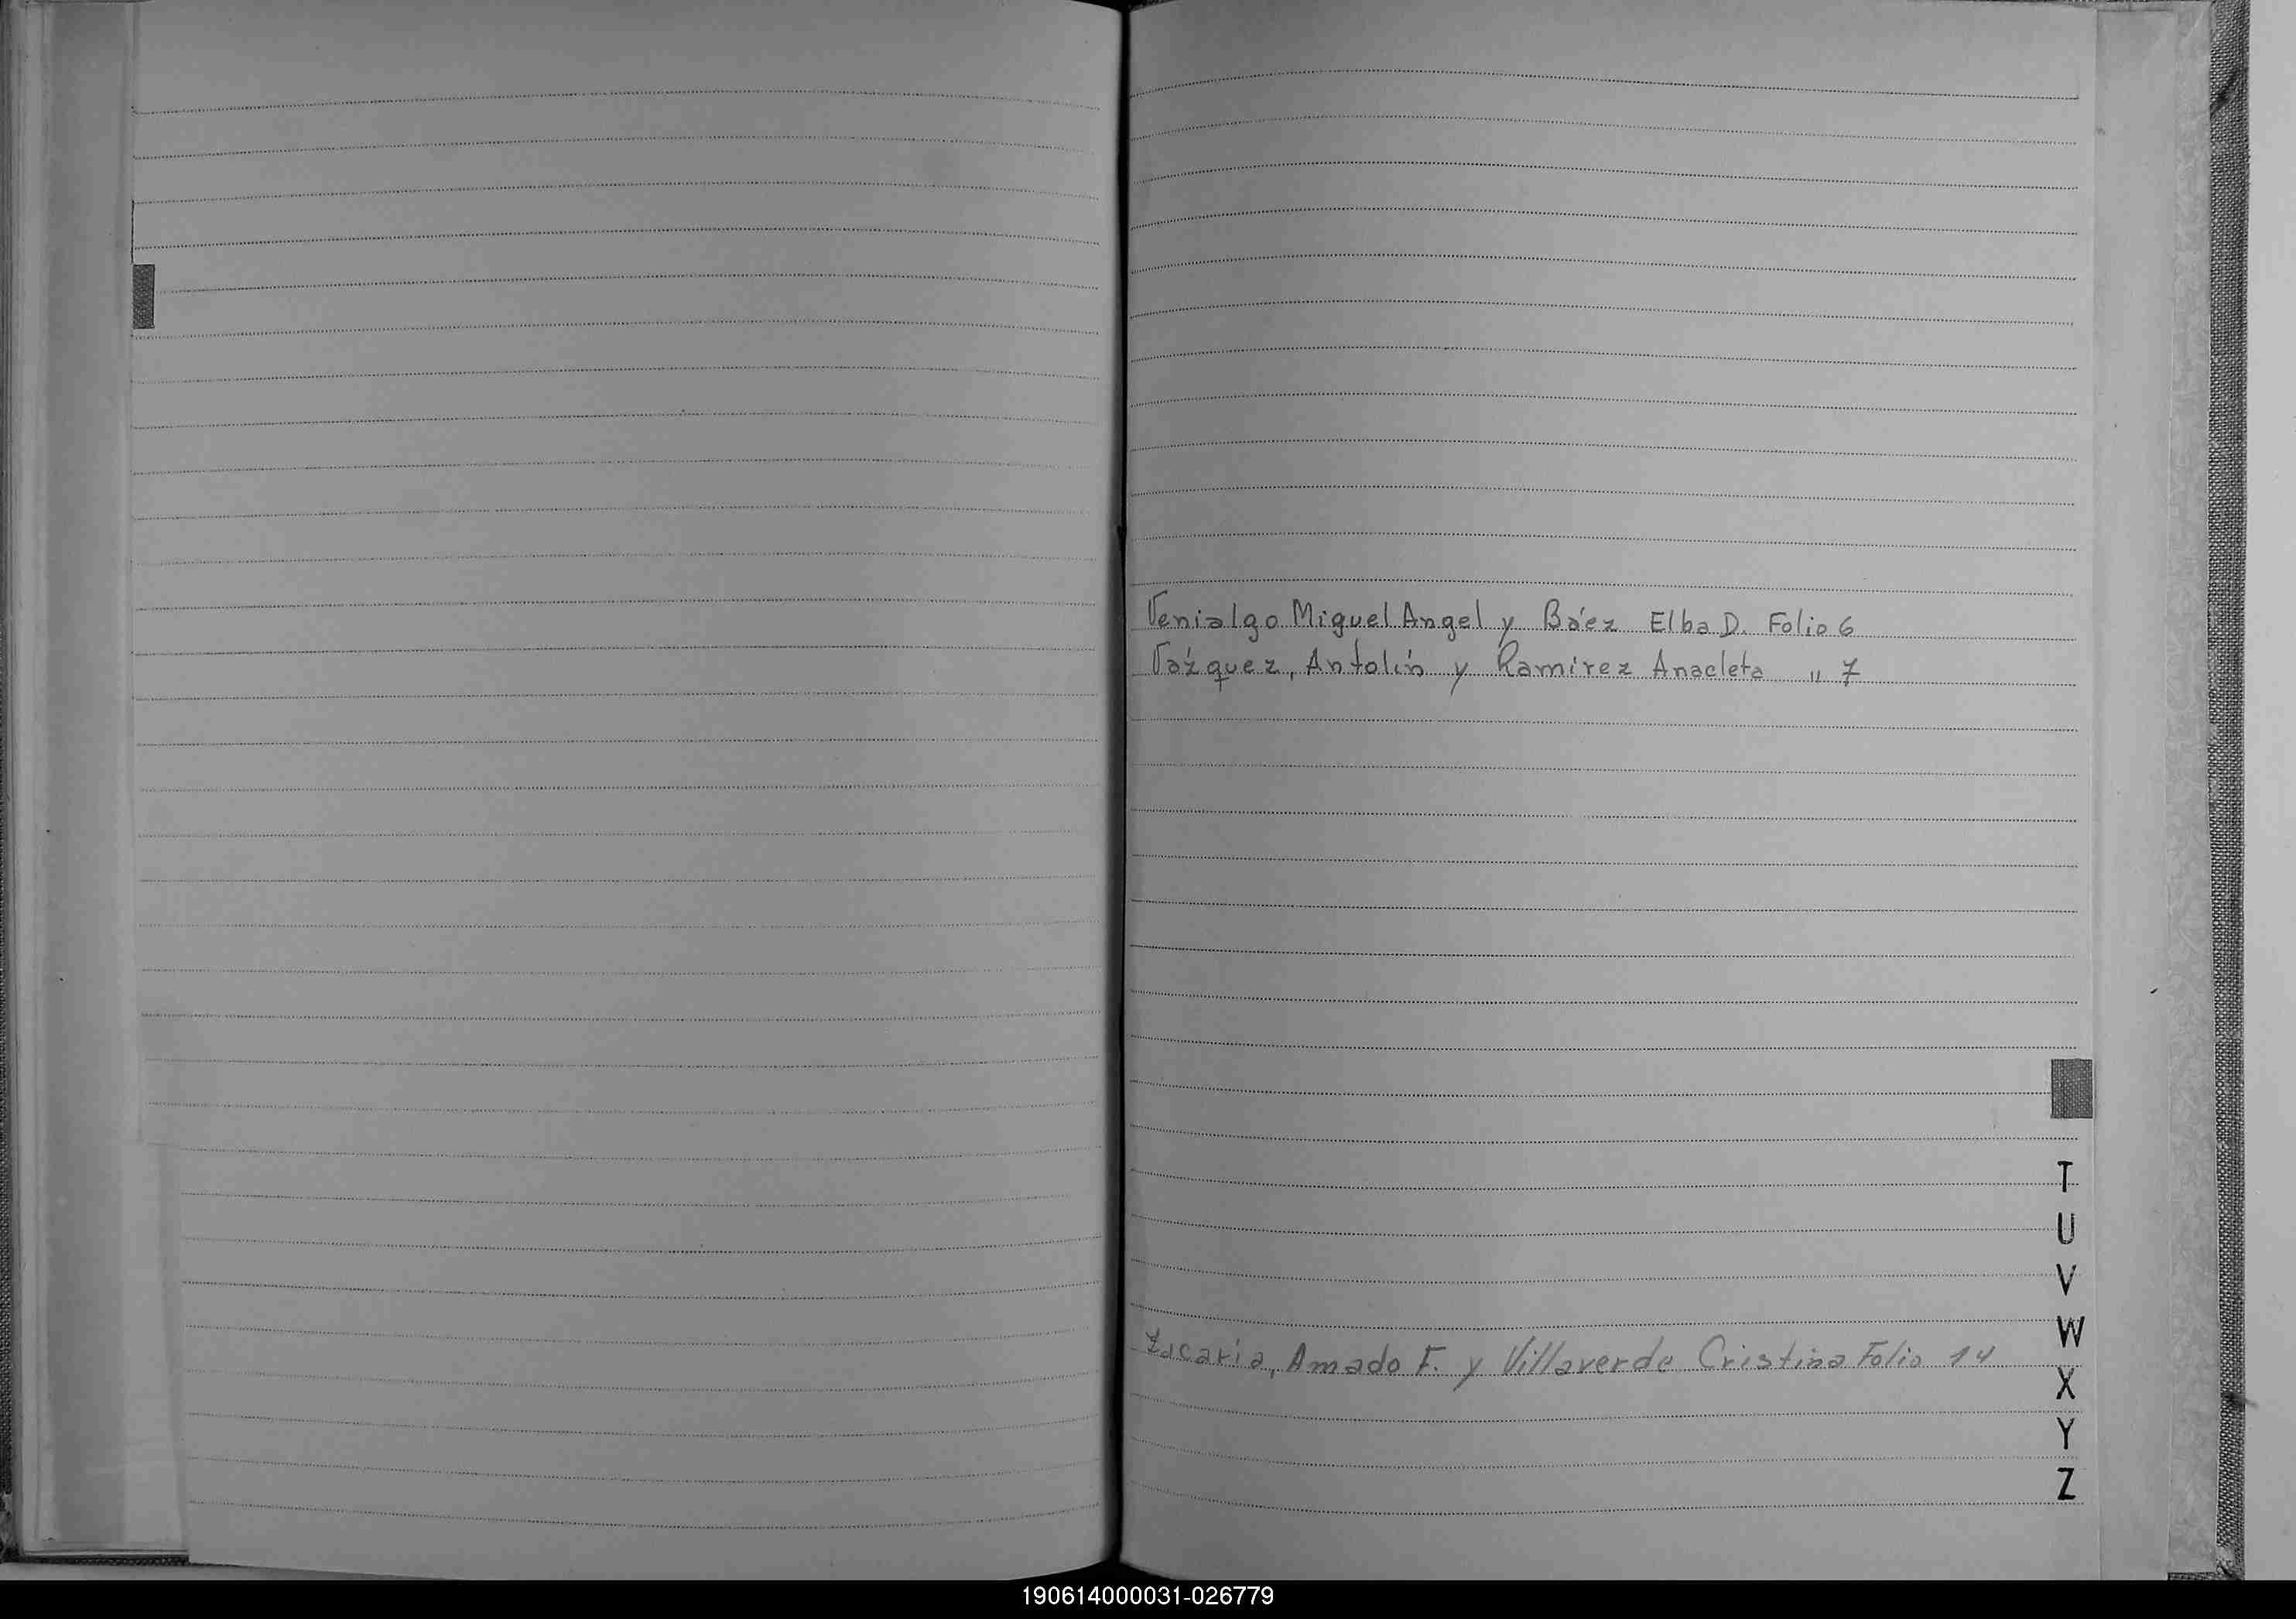 Venialgo Miguel Angel y Báez Elba D. Folio 6
Vázquez, Antolín y Ramírez Anacleta " 7
T
U
V
W
Zacaría, Amado F. y Villaverde Cristina Folio 14
X
Y
Z
190614000031-026779